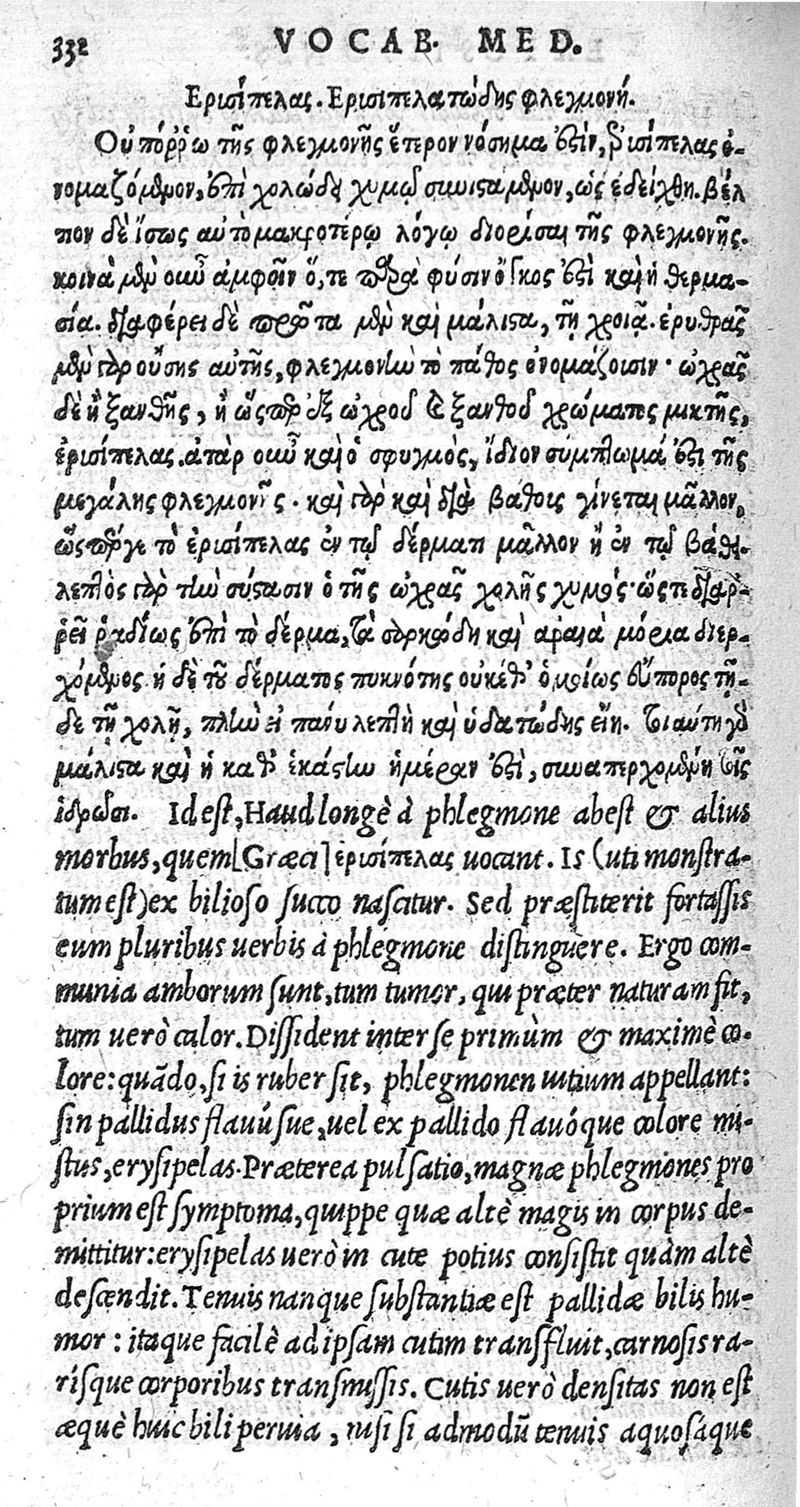 332 VOCAB. MED.
Ερισίπελας. Ερισιπελατώδης φλεγμονή.
Οὐ πόῤῥω τῆς φλεγμονῆς ἕτερον νόσημα ἐστὶν, ἐρισίπελας ὀ-
νομαζόμενον, ἐπὶ χολώδει χυμῷ συνιστάμενον, ὡς ἐδείχθη. βέλ
τιον δὲ ἴσως αὐτὸ μακροτέρῳ λόγῳ διορίσαι τῆς φλεγμονῆς.
κοινὰ μὲν οὖν ἀμφοῖν ὅ,τε παρὰ φύσιν ὄγκος ἐστὶ καὶ ἡ θερμα-
σία. διαφέρει δὲ πρῶτα μὲν καὶ μάλιστα, τῇ χροιᾷ. ἐρυθρᾶς
μὲν γὰρ οὔσης αὐτῆς, φλεγμονὴν τὸ πάθος ὀνομάζουσιν· ὠχρᾶς
δὲ ἢ ξανθῆς, ἢ ὥσπερ ἐξ ὠχροῦ καὶ ξανθοῦ χρώματος μικτῆς,
ἐρισίπελας. ἀτὰρ οὖν καὶ ὁ σφυγμὸς, ἴδιον σύμπτωμά ἐστι τῆς
μεγάλης φλεγμονῆς. καὶ γὰρ καὶ διὰ βάθους γίνεται μᾶλλον,
ὥσπερ γε τὸ ἐρισίπελας ἐν τῷ δέρματι μᾶλλον ἢ ἐν τῷ βάθει.
λεπτὸς γὰρ τὴν σύστασιν ὁ τῆς ὠχρᾶς χολῆς χυμός· ὥστε διαῤ-
ῥεῖ ῥᾳδίως ἐπὶ τὸ δέρμα, τὰ σαρκώδη καὶ ἀραιὰ μόρια διερ-
χόμενος ἡ δὲ τοῦ δέρματος πυκνότης οὐκέθ' ὁμοίως εὔπορος τῇ-
δε τῇ χολῇ, πλὴν εἰ πάνυ λεπτὴ καὶ ὑδατώδης εἴη. τοιαύτη γὰρ
μάλιστα καὶ ἡ καθ' ἑκάστην ἡμέραν ἐστὶ, συναπερχομένη τοῖς
ἱδρῶσι. Id est, Haud longè à phlegmone abest & alius
morbus, quem [Græci] ερισίπελας uocant. Is (uti monstra-
tum est) ex bilioso succo nascitur. Sed præstiterit fortassis
eum pluribus uerbis à phlegmone distinguere. Ergo com-
munia amborum sunt, tum tumor, qui præter naturam fit,
tum uerò calor. Dissident inter se primùm & maximè co-
lore: quãdo, si is ruber sit, phlegmonen uitium appellant:
sin pallidus flauúsue, uel ex pallido flauóque colore mi-
stus, erysipelas. Præterea pulsatio, magnæ phlegmones pro
prium est symptoma, quippe quæ altè magis in corpus de-
mittitur: erysipelas uerò in cute potius consistit quàm altè
descendit. Tenuis nanque substantiæ est pallidæ bilis hu-
mor: itaque facilè ad ipsam cutim transfluit, carnosis ra-
rísque corporibus transmissis. Cutis uerò densitas non est
æquè huic bili peruia, nisi si admodũ tenuis aquosáque